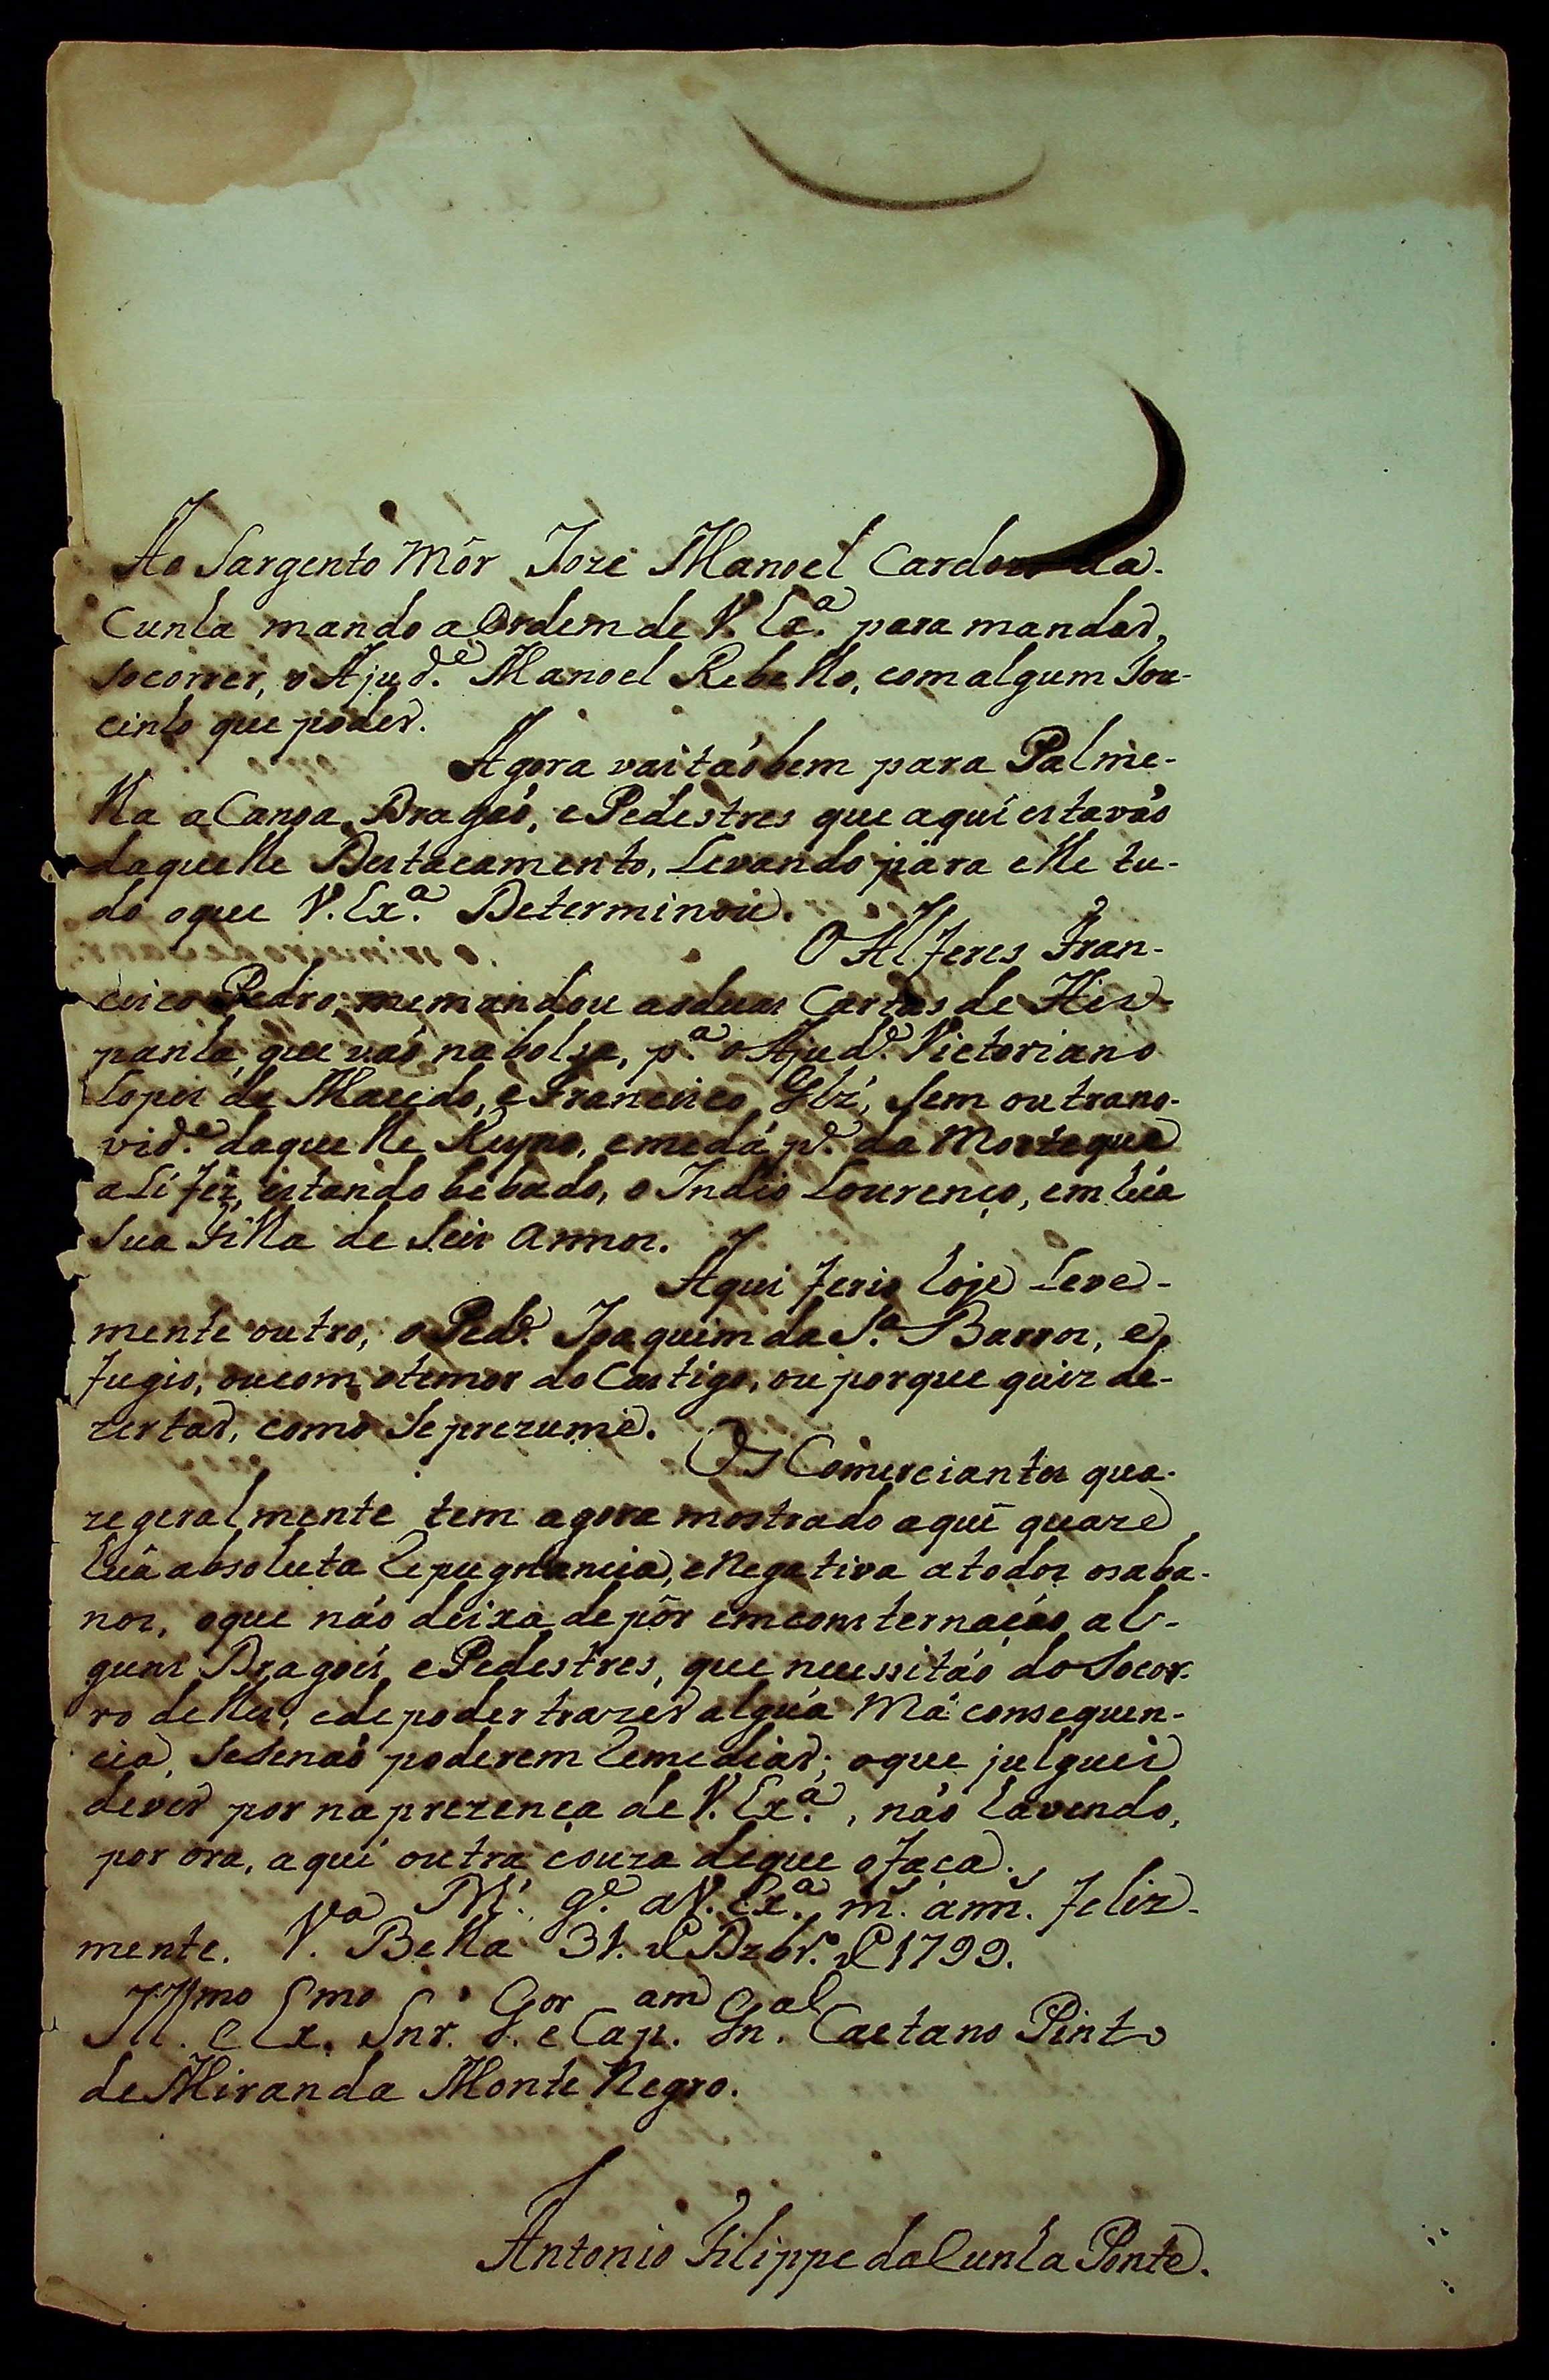 Ao Sargento Mór Jozé Manoel Cardozo da
Cunha mando a Ordem de V. Exª. para mandar,
socorrer, o Ajudᵉ. Manoel Rebello, com algum Tou-
cinho que poder.
Agora vai taóbem para Palme-
lla a Canoa, Dragaó, e Pedestres que aqui estavaó
daquelle Destacamento, Levando para elle tu-
do o que V. Exª. Determinou.
O Alferes Fran-
cisco Pedro, me mandou as duas Cartas de Hes-
panha, que vaó na bolsa, pª. o Ajudᵉ. Victoriano
Lopes de Macedo, e Francisco Glz', sem outra no-
vidᵉ. daquelle Reyno, e me dá pᵉ. da Morte que
ali fez, estando bebado, o Indio Lourenço, em húa
sua filha de seis annos.
Aqui ferio hoje Leve-
mente outro, o Pedᵉ. Joaquim da Sª. Barros, e
fugio, ou com o temor do Castigo, ou porque quiz de-
zertar, como se prezume.
Os Comerciantes qua-
ze geralmente tem agora mostrado aqui quaze
húa absoluta Repugnancia, e Negativa a todos os aba-
nos, o que náo deixa de pôr em consternaçáo al-
guns Dragoés, e Pedestres, que necessitáo do Socor-
ro delles, e de poder trazer algúa Má consequen-
cia, se se naó poderem Remediar; o que julguei
dever por na prezença de V. Exª., náo havendo,
por ora, aqui outra couza de que o faça.
Nª Mᵉ. gᵉ. a V. Exª. mˢ. annˢ. feliz-
mente. V. Bella 31. de Dzbrº. de 1799.
Illᵐᵒ. e Exᵐᵒ. Snr. Gᵒʳ. e Capᵃᵐ. Gnᵃˡ. Caetano Pinto
de Miranda Monte Negro.
Antonio Filippe da Cunha Ponte.